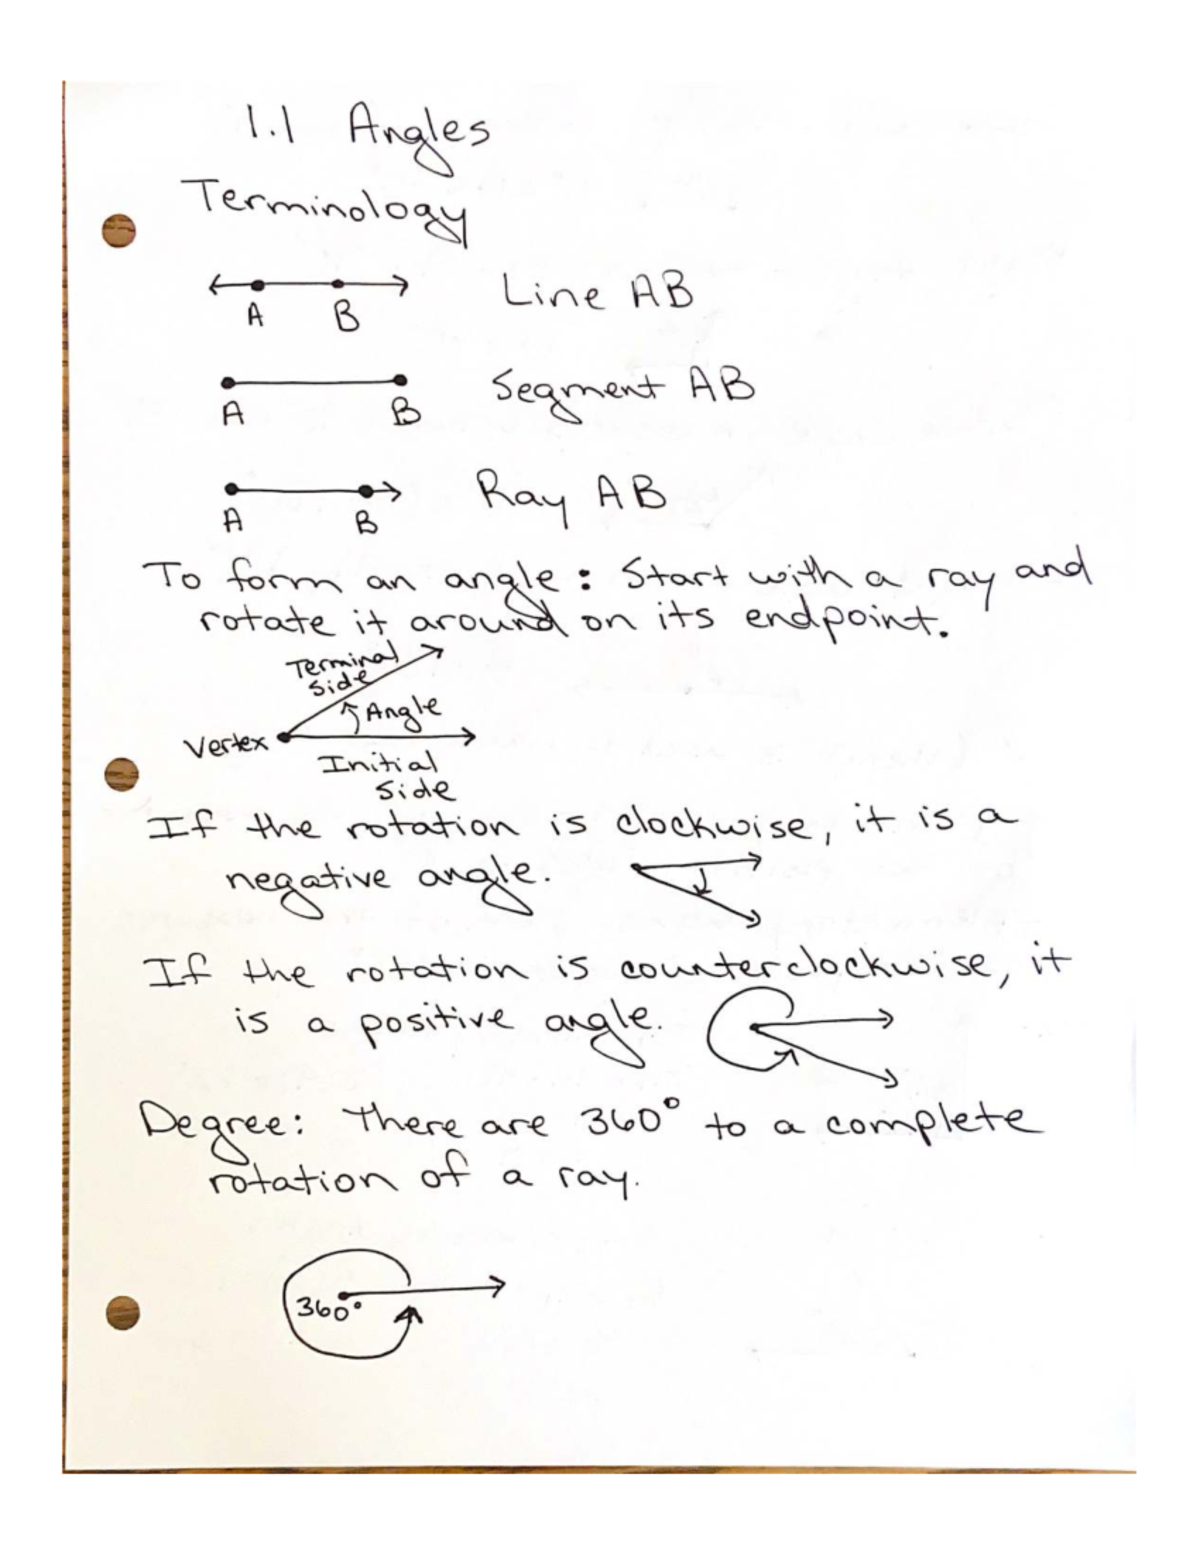 1.1 Angles
Terminology
A B Line AB
A B Segment AB
A B Ray AB
To form an angle: Start with a ray and
rotate it around on its endpoint.
Terminal
side
Angle
Vertex
Initial
side
If the rotation is clockwise, it is a
negative angle.
If the rotation is counterclockwise, it
is a positive angle.
Degree: There are 360° to a complete
rotation of a ray.
360°